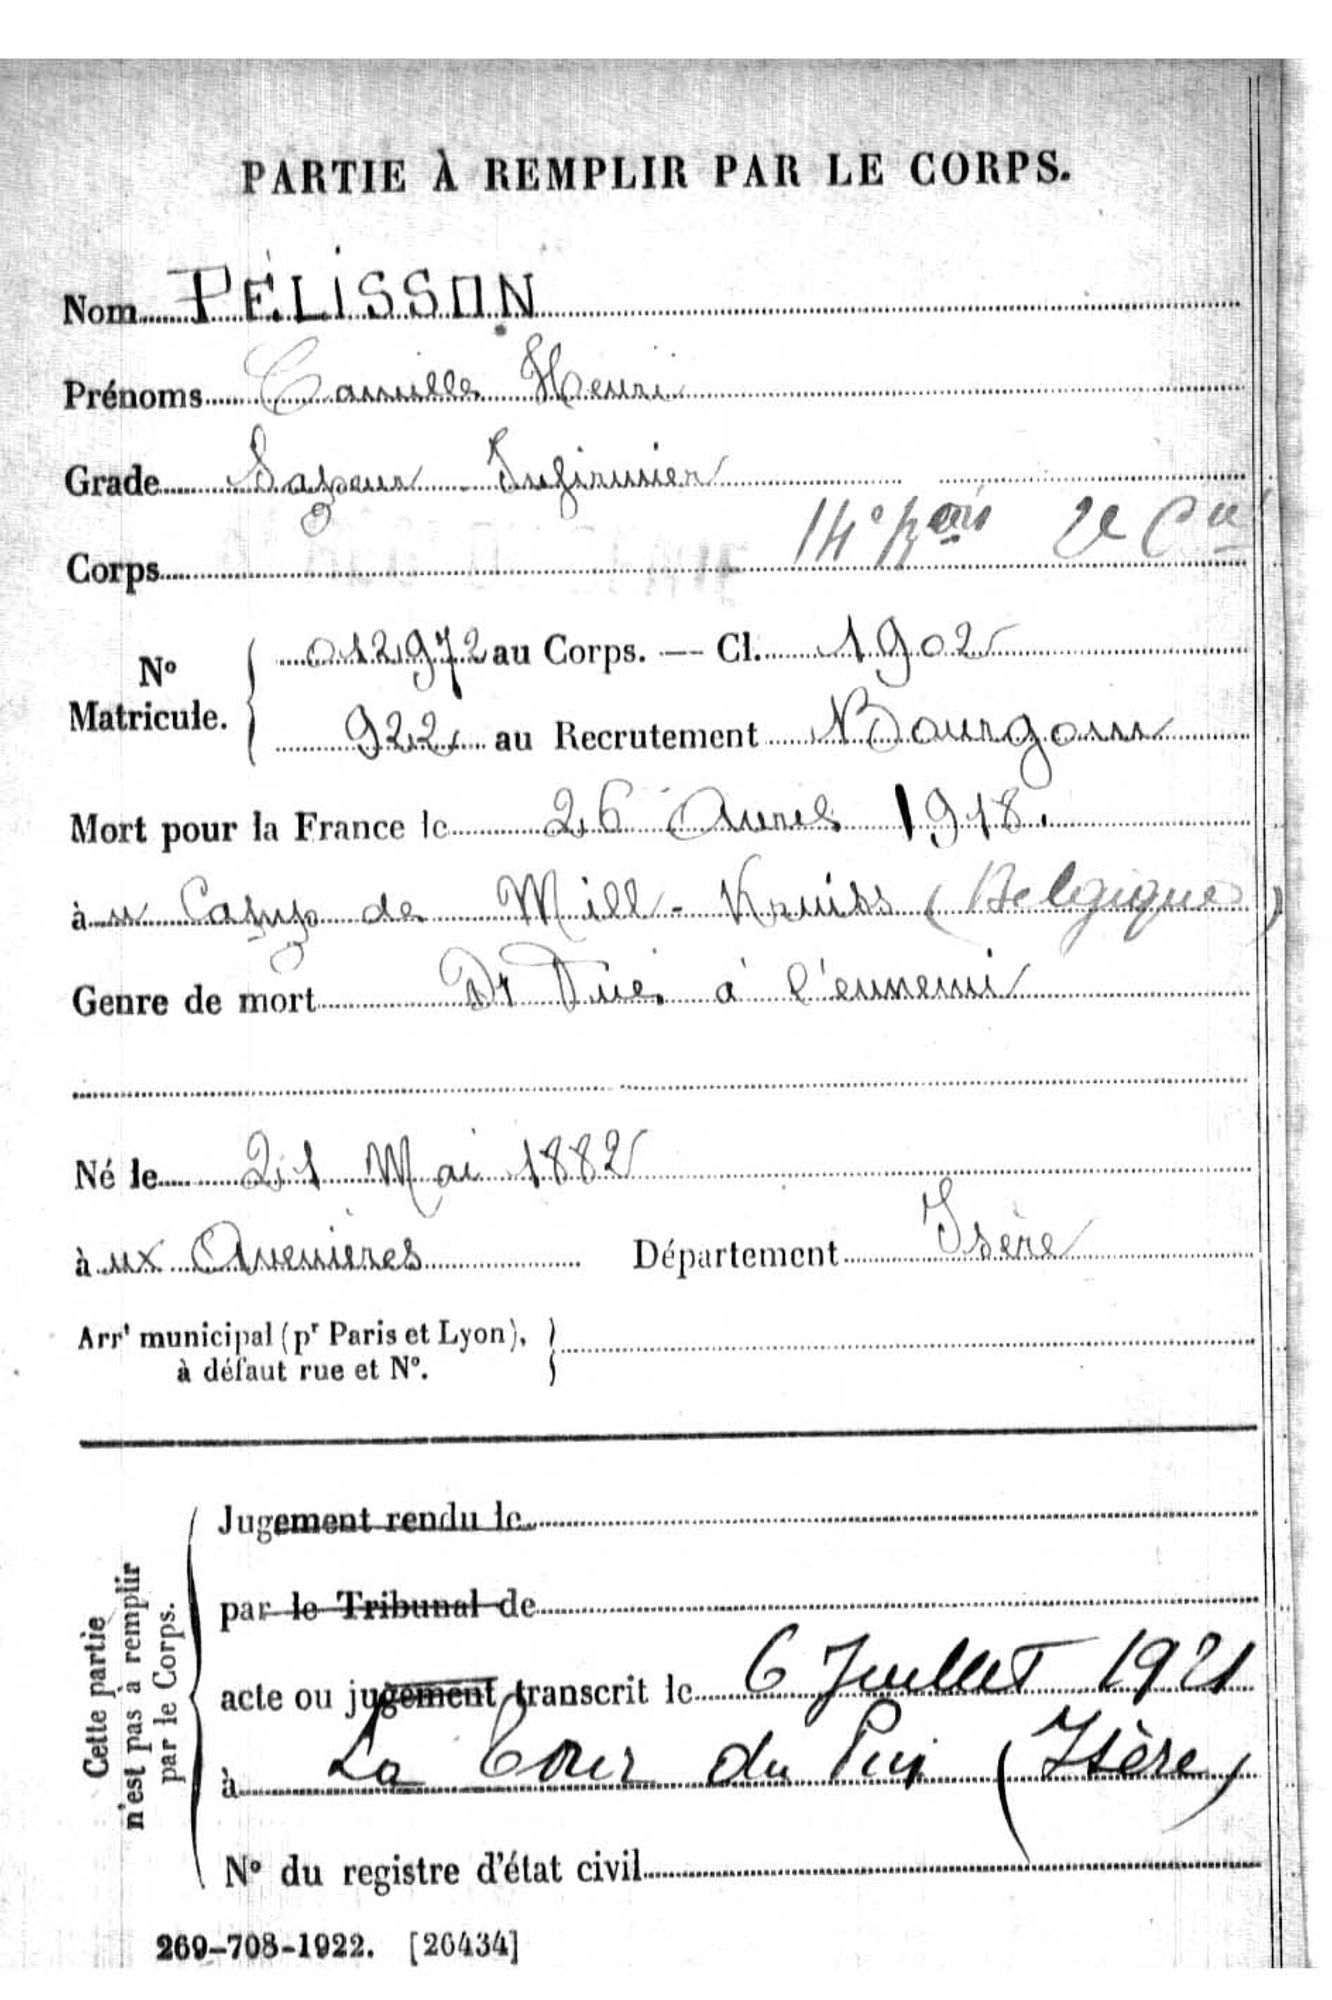 PARTIE À REMPLIR PAR LE CORPS.
Nom PÉLISSON
Prénoms Camille Henri
Grade Sapeur Infirmier
Corps 14e Bon 2e Cie
No Matricule. 012972 au Corps. — Cl. 1902
922 au Recrutement Bourgoin
Mort pour la France le 26 Avril 1918.
à u Camp de Mill-Kruiss (Belgique)
Genre de mort Dt Tué à l'ennemi
Né le 21 Mai 1882
à ux Avenières Département Isère
Arrt municipal (pr Paris et Lyon),
à défaut rue et No.
Cette partie
n'est pas à remplir
par le Corps.
Jugement rendu le
par le Tribunal de
acte ou jugement transcrit le 6 Juillet 1921
à La Tour du Pin (Isère)
No du registre d'état civil
269-708-1922. [26434]